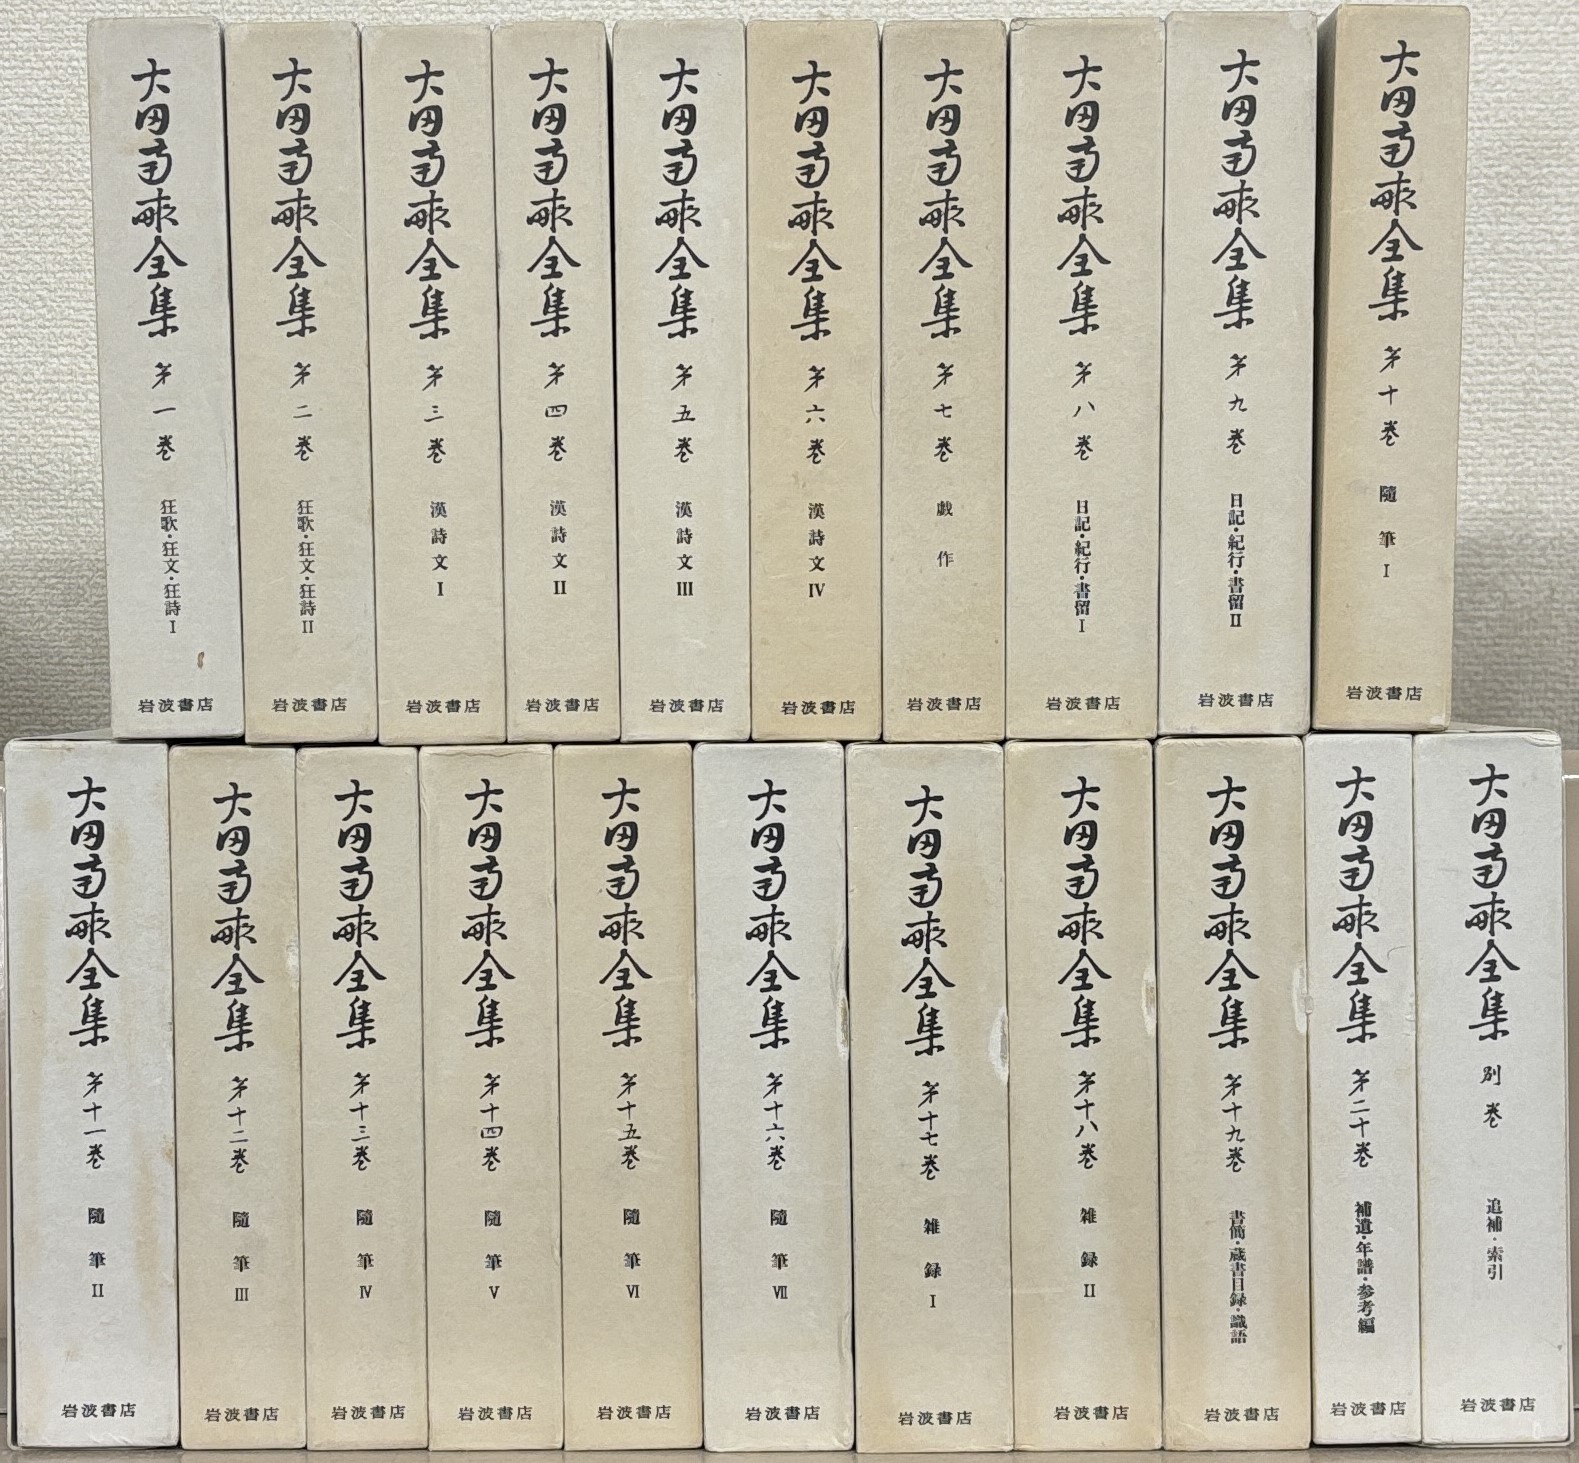 大田南畝全集 第一巻 狂歌・狂文・狂詩Ⅰ 岩波書店
大田南畝全集 第二巻 狂歌・狂文・狂詩Ⅱ 岩波書店
大田南畝全集 第三巻 漢詩文Ⅰ 岩波書店
大田南畝全集 第四巻 漢詩文Ⅱ 岩波書店
大田南畝全集 第五巻 漢詩文Ⅲ 岩波書店
大田南畝全集 第六巻 漢詩文Ⅳ 岩波書店
大田南畝全集 第七巻 戯作 岩波書店
大田南畝全集 第八巻 日記・紀行・書留Ⅰ 岩波書店
大田南畝全集 第九巻 日記・紀行・書留Ⅱ 岩波書店
大田南畝全集 第十巻 隨筆Ⅰ 岩波書店
大田南畝全集 第十一巻 隨筆Ⅱ 岩波書店
大田南畝全集 第十二巻 隨筆Ⅲ 岩波書店
大田南畝全集 第十三巻 隨筆Ⅳ 岩波書店
大田南畝全集 第十四巻 隨筆Ⅴ 岩波書店
大田南畝全集 第十五巻 隨筆Ⅵ 岩波書店
大田南畝全集 第十六巻 隨筆Ⅶ 岩波書店
大田南畝全集 第十七巻 雑録Ⅰ 岩波書店
大田南畝全集 第十八巻 雑録Ⅱ 岩波書店
大田南畝全集 第十九巻 書簡・蔵書目録・識語 岩波書店
大田南畝全集 第二十巻 補遺・年譜・参考編 岩波書店
大田南畝全集 別巻 追補・索引 岩波書店